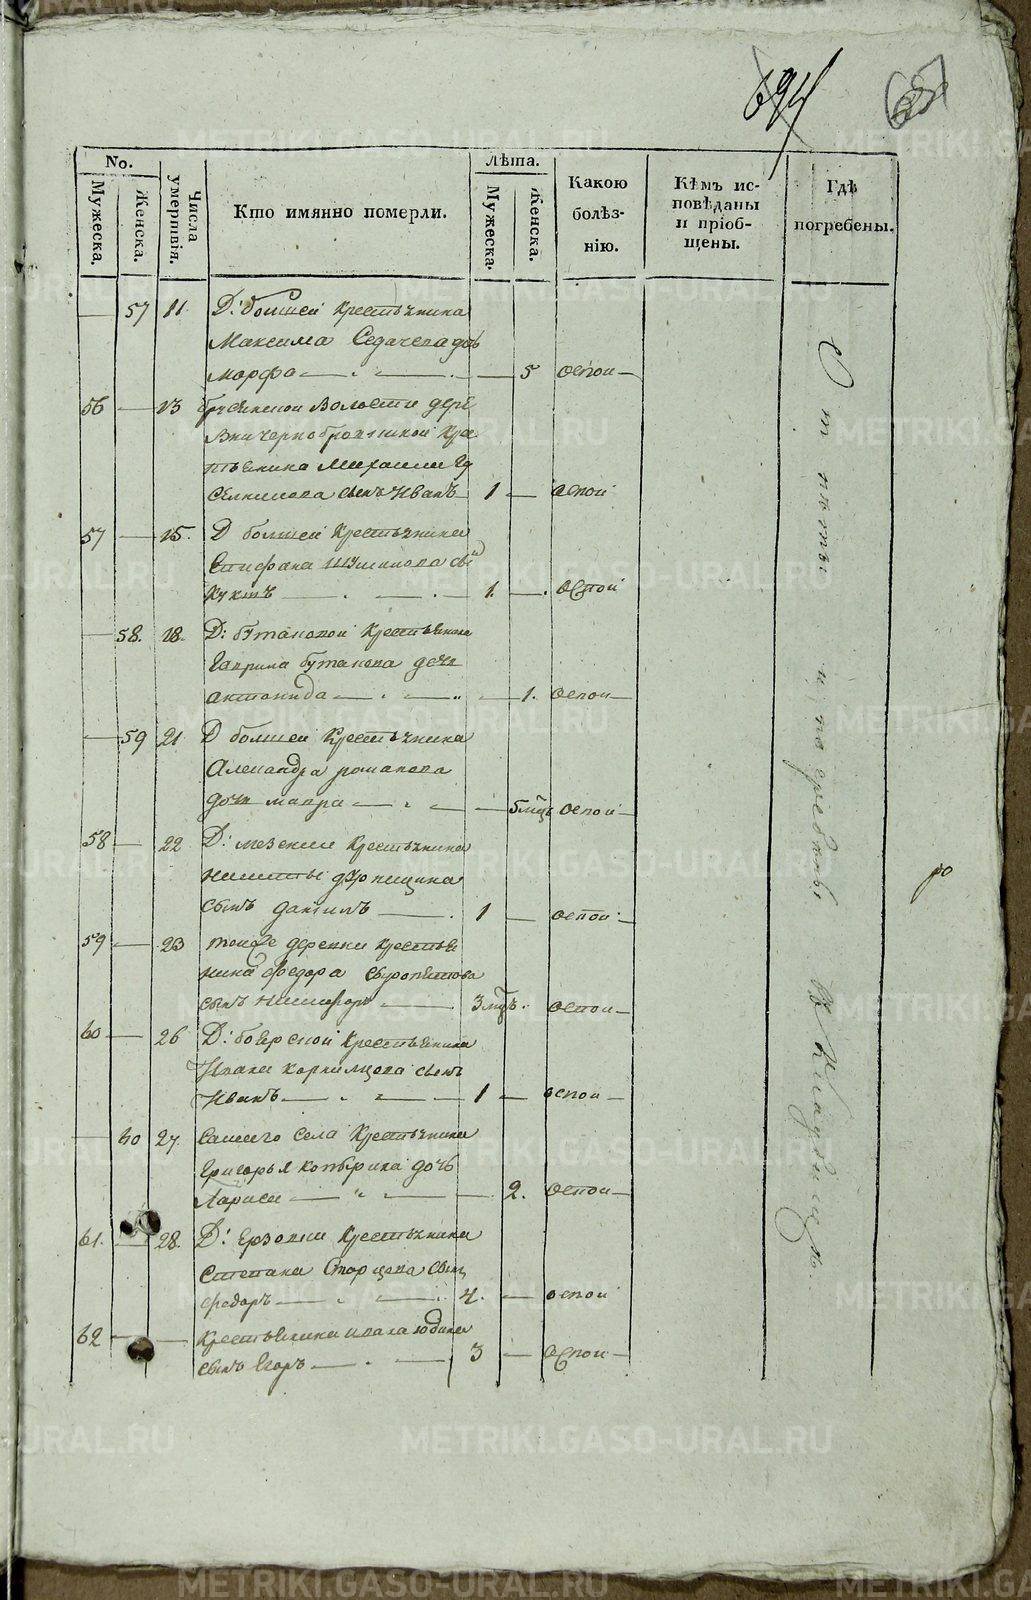 694
No.
Мужеска.
Женска.
Числа умертвія.
Кто имянно померли.
Лѣта.
Мужеска.
Женска.
Какою болѣз-нію.
Кѣмъ ис-повѣданы и пріоб-щены.
Гдѣ погребены.
57 11 Д: болшей Крестьянина
Максима Седачева дочь
Марфа 5 оспои
56 13 Волости дере
вни чернобровиной Кре
стьянина Михаила
сынъ Иванъ 1 оспой
57 15. Д болшей Крестьянина
Епифана сы
1. Оспой
58. 18. Д: бутаковой Крестьянина
Гаврила бутакова дочь
антонида 1. оспои
59 21 Д болшеи Крестьянина
Александра романова
дочь мавра 5 мцъ оспои
58 22 Д: мезении Крестьянина
никиты
сынъ данилъ 1 оспои
59 23 тоиже деревни крестья
нина федора
сынъ никифоръ 3 мцъ. оспои
60 26 Д: боярской Крестьянина
Ивана Корнилцова сынъ
Иванъ 1 оспои
60 27 Самаго села Крестьянина
Григорья дочь
Лариса 2. оспои
61. 28. Д: Ерзовки Крестьянина
Степана Старцова сынъ
федоръ 4. оспои
62 Крестьянина ивана юдина
сынъ Егоръ 3 оспои
Отпѣты и погребены
METRIKI.GASO-URAL.RU